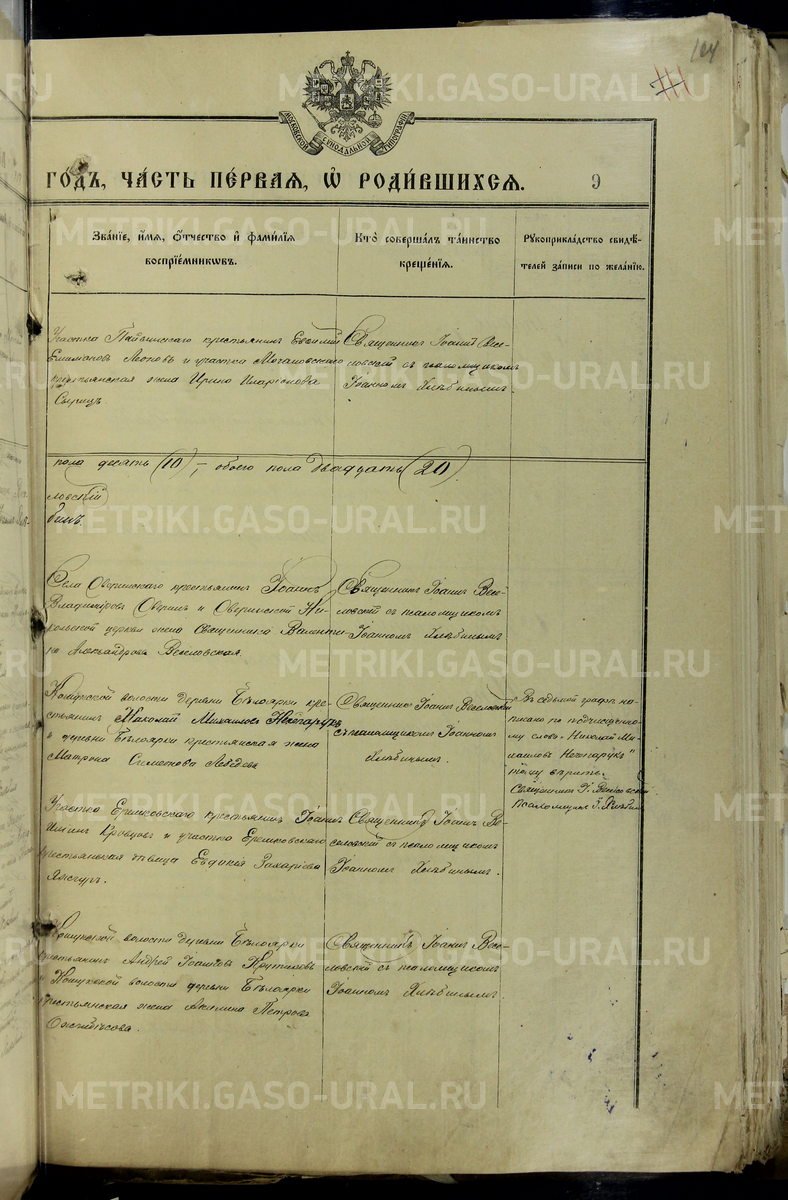 104
МОСКОВСКОЙ СѴНОДАЛЬНОЙ ТИПОГРАФІИ
ГО́ДЪ, ЧА́СТЬ ПЕ́РВАѦ, Ѿ РОДИ́ВШИХСѦ.
9
Зва́нїе, и҆́мѧ, ѻ҆́тчество и҆ фами́лїѧ
воспрїе́мниковъ.
Кто̀ соверша́лъ та́инство
креще́нїѧ.
Рꙋкоприкла́дство свидѣ́-
телей за́писи по жела́нїю.
крестьянинъ Евѳимій
Леоновъ и участка
крестьянская жена Ирина Иларіонова
Священникъ Іоаннъ Весе-
ловскій съ псаломщикомъ
Іоанномъ Хлѣбинымъ.
пола десять (10), – обоего пола двадцать (20).
ловскій
бинъ
Села Оверинскаго крестьянинъ Іоаннъ
Владиміровъ Оверинъ и Оверинской Ни-
кольской церкви жена Священника Валенти-
на Александрова Веселовская.
Священникъ Іоаннъ Весе-
ловскій съ псаломщикомъ
Іоанномъ Хлѣбинымъ
волости деревни Бѣлоярки кре-
стьянинъ Николай Михаиловъ Нехочарукъ
и деревни Бѣлоярки крестьянская жена
Матрона Симеонова Лебедева
Священникъ Іоаннъ Веселовскій
съ псаломщикомъ Іоанномъ
Хлѣбинымъ.
Въ седьмой графѣ на-
писано по подчищенно-
му слова "Николай Ми-
хаиловъ Нехочарукъ"
тому вѣрить.
Священникъ І. Веселовскій
Псаломщикъ І. Хлѣбинъ
Участка Ершковскаго крестьянинъ Іоаннъ
Кравцовъ и участка Ершковскаго
крестьянская дѣвица Евдокія Захаріева
Священникъ Іоаннъ Ве-
селовскій съ псаломщикомъ
Іоанномъ Хлѣбинымъ.
волости деревни Бѣлоярки
крестьянинъ Андрей Іоанновъ
и волости деревни Бѣлоярки
крестьянская жена Акилина Петрова
Священникъ Іоаннъ Весе-
ловскій съ псаломщикомъ
Іоанномъ Хлѣбинымъ
METRIKI.GASO-URAL.RU